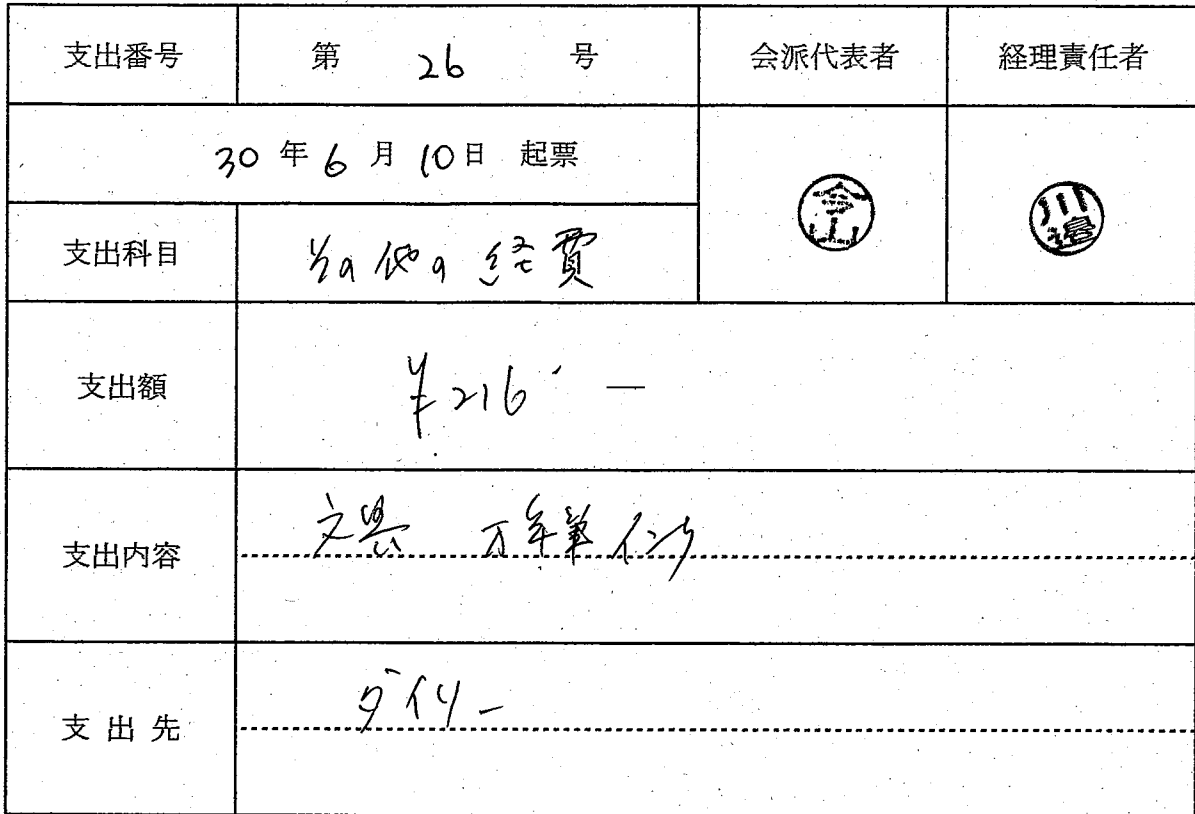 支出番号 第 26 号 会派代表者 経理責任者
30 年 6 月 10日 起票
今山 川邉
支出科目 その他の経費
支出額 ¥216 —
支出内容 文具 万年筆インク
支出先 ダイリー